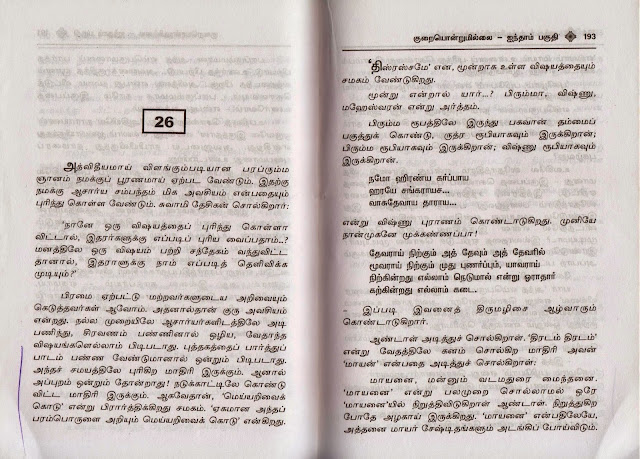 26
அத்விதீயமாய் விளங்கும்படியான பரப்ரும்ம
ஞானம் நமக்குப் பூரணமாய் ஏற்பட வேண்டும். இதற்கு
நமக்கு ஆசார்ய சம்பந்தம் மிக அவசியம் என்பதையும்
புரிந்து கொள்ள வேண்டும். சுவாமி தேசிகன் சொல்கிறார்:
'நானே ஒரு விஷயத்தைப் புரிந்து கொள்ளா
விட்டால், இதரர்களுக்கு எப்படிப் புரிய வைப்பதாம்..?
மனத்திலே ஒரு விஷயம் பற்றி சந்தேகம் வந்துவிட்ட
தானால், இதராளுக்கு நாம் எப்படித் தெளிவிக்க
முடியும்?'
பிரமை ஏற்பட்டு மற்றவர்களுடைய அறிவையும்
கெடுத்தவர்கள் ஆவோம். அதனால்தான் குரு அவசியம்
என்றது. நல்ல முறையிலே ஆசார்யர்களிடத்திலே அடி
பணிந்து, சிரவணம் பண்ணினால் ஒழிய, வேதாந்த
விஷயங்களெல்லாம் பிடிபடாது. புத்தகத்தைப் பார்த்துப்
பாடம் பண்ண வேண்டுமானால் ஒன்றும் பிடிபடாது.
அந்தச் சமயத்திலே புரிகிற மாதிரி இருக்கும். ஆனால்
அப்புறம் ஒன்றும் தோன்றாது! நடுக்காட்டிலே கொண்டு
விட்ட மாதிரி இருக்கும். ஆகவேதான், 'மெய்யறிவைக்
கொடு' என்று பிரார்த்திக்கிறது சமகம். 'ஏகமான அந்தப்
பரம்பொருளை அறியும் மெய்யறிவைக் கொடு' என்கிறது.
குறையொன்றுமில்லை – ஐந்தாம் பகுதி 193
'திஸ்ரஸ்சமே' என, மூன்றாக உள்ள விஷயத்தையும்
சமகம் வேண்டுகிறது.
மூன்று என்றால் யார்...? பிரும்மா, விஷ்ணு,
மஹேஸ்வரன் என்று அர்த்தம்.
பிரும்ம ரூபத்திலே இருந்து பகவான் தம்மைப்
பகுத்துக் கொண்டு, ருத்ர ரூபியாகவும் இருக்கிறான்;
பிரும்ம ரூபியாகவும் இருக்கிறான்; விஷ்ணு ரூபியாகவும்
இருக்கிறான்.
நமோ ஹிரண்ய கர்ப்பாய
ஹரயே சங்கராயச...
வாசுதேவாய தாராய...
என்று விஷ்ணு புராணம் கொண்டாடுகிறது. முனியே
நான்முகனே முக்கண்ணப்பா!
தேவராய் நிற்கும் அத் தேவும் அத் தேவரில்
மூவராய் நிற்கும் முது புணர்ப்பும், யாவராய்
நிற்கின்றது எல்லாம் நெடுமால் என்று ஓராதார்
கற்கின்றது எல்லாம் கடை.
– இப்படி இவனைத் திருமழிசை ஆழ்வாரும்
கொண்டாடுகிறார்.
ஆண்டாள் அடித்துச் சொல்கிறாள். 'திரடம் திரடம்'
என்று வேதத்திலே கனம் சொல்கிற மாதிரி அவன்
'மாயன்' என்பதை அடித்துச் சொல்கிறாள்:
மாயனை, மன்னும் வடமதுரை மைந்தனை.
'மாயனை' என்று பலமுறை சொல்லாமல் ஒரே
'மாயனை'யில் நிறுத்திவிடுகிறாள் ஆண்டாள். நிறுத்துகிற
போதே அழகாய் இருக்கிறது. 'மாயனை' என்பதிலேயே,
அத்தனை மாயா சேஷ்டிதங்களும் அடங்கிப் போய்விடும்.